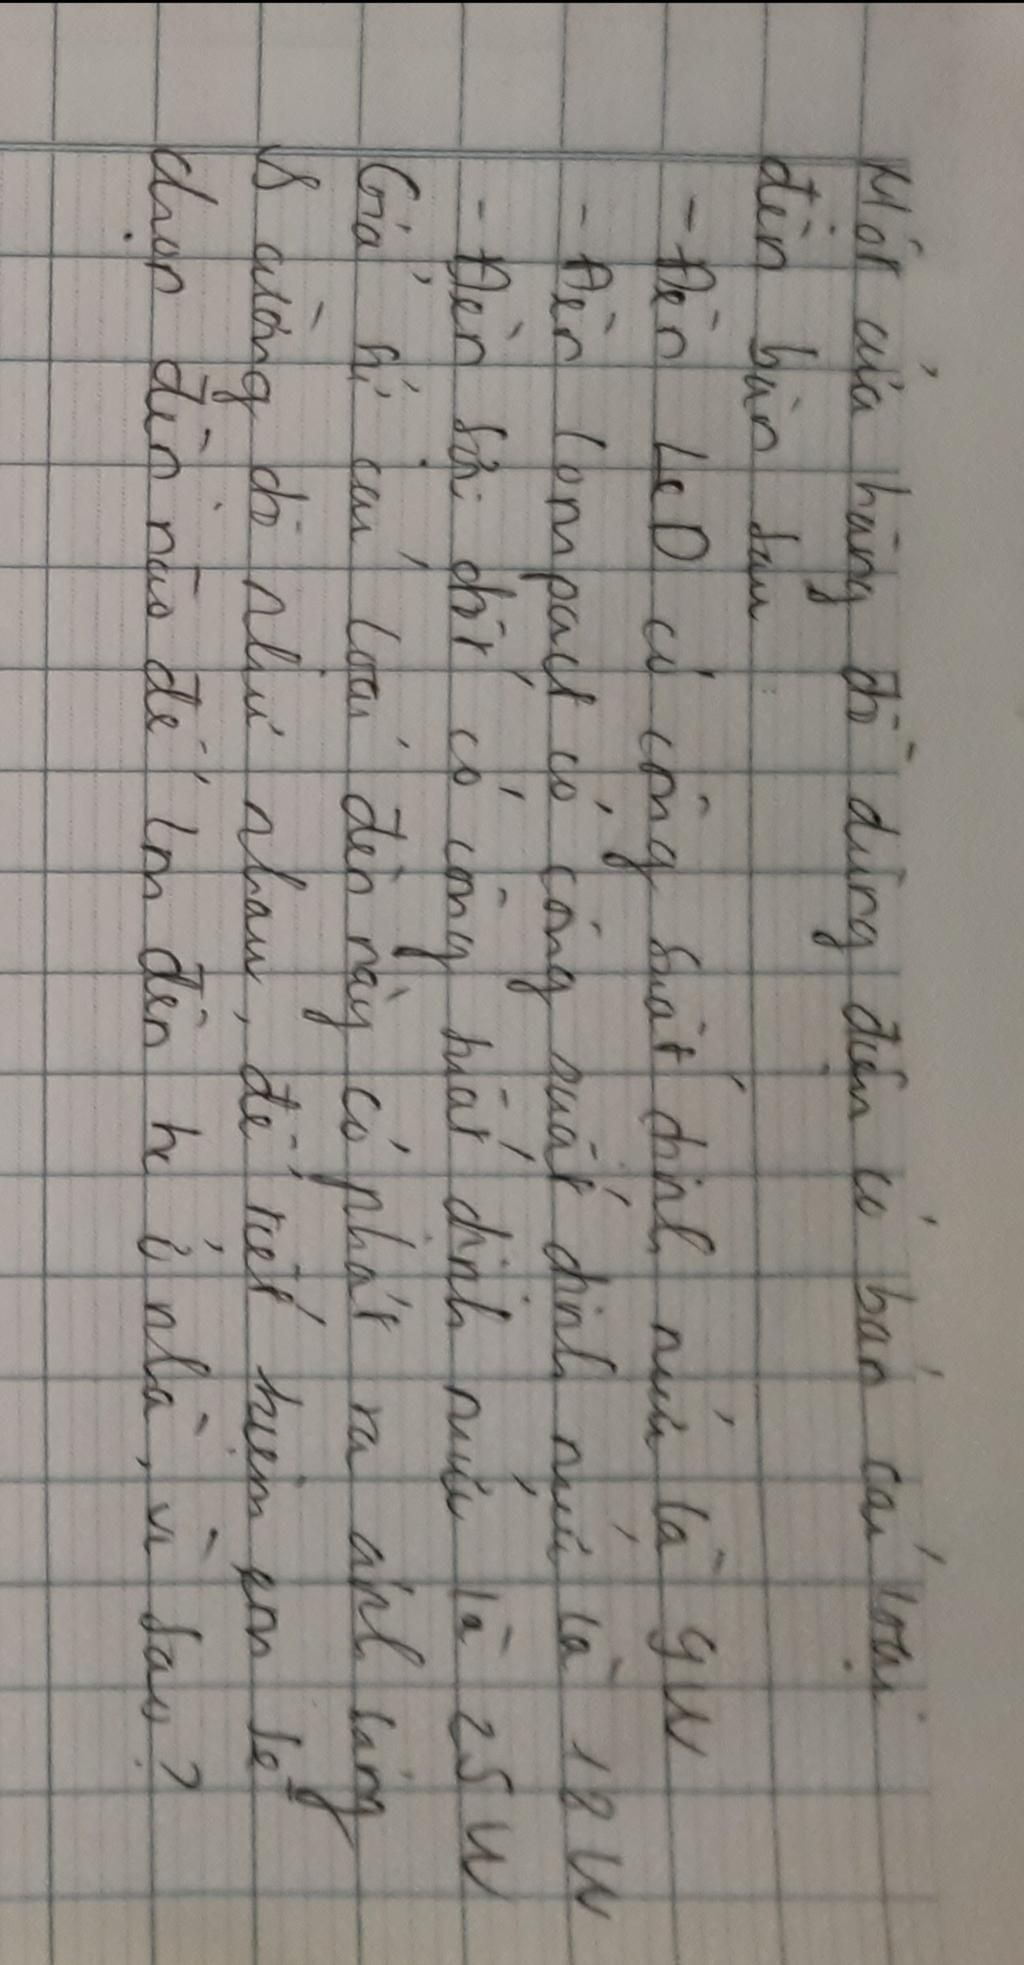 Một cửa hàng đồ dùng điện có bán các loại
đèn bàn sau:
- Đèn LeD có công suất định mức là 9W
- Đèn Compact có công suất định mức là 18W
- Đèn sợi đốt có công suất định mức là 25W
Giả sử các loại đèn này có phát ra ánh sáng
cường độ như nhau, để tiết kiệm em sẽ
chọn đèn nào để làm đèn học ở nhà, vì sao?